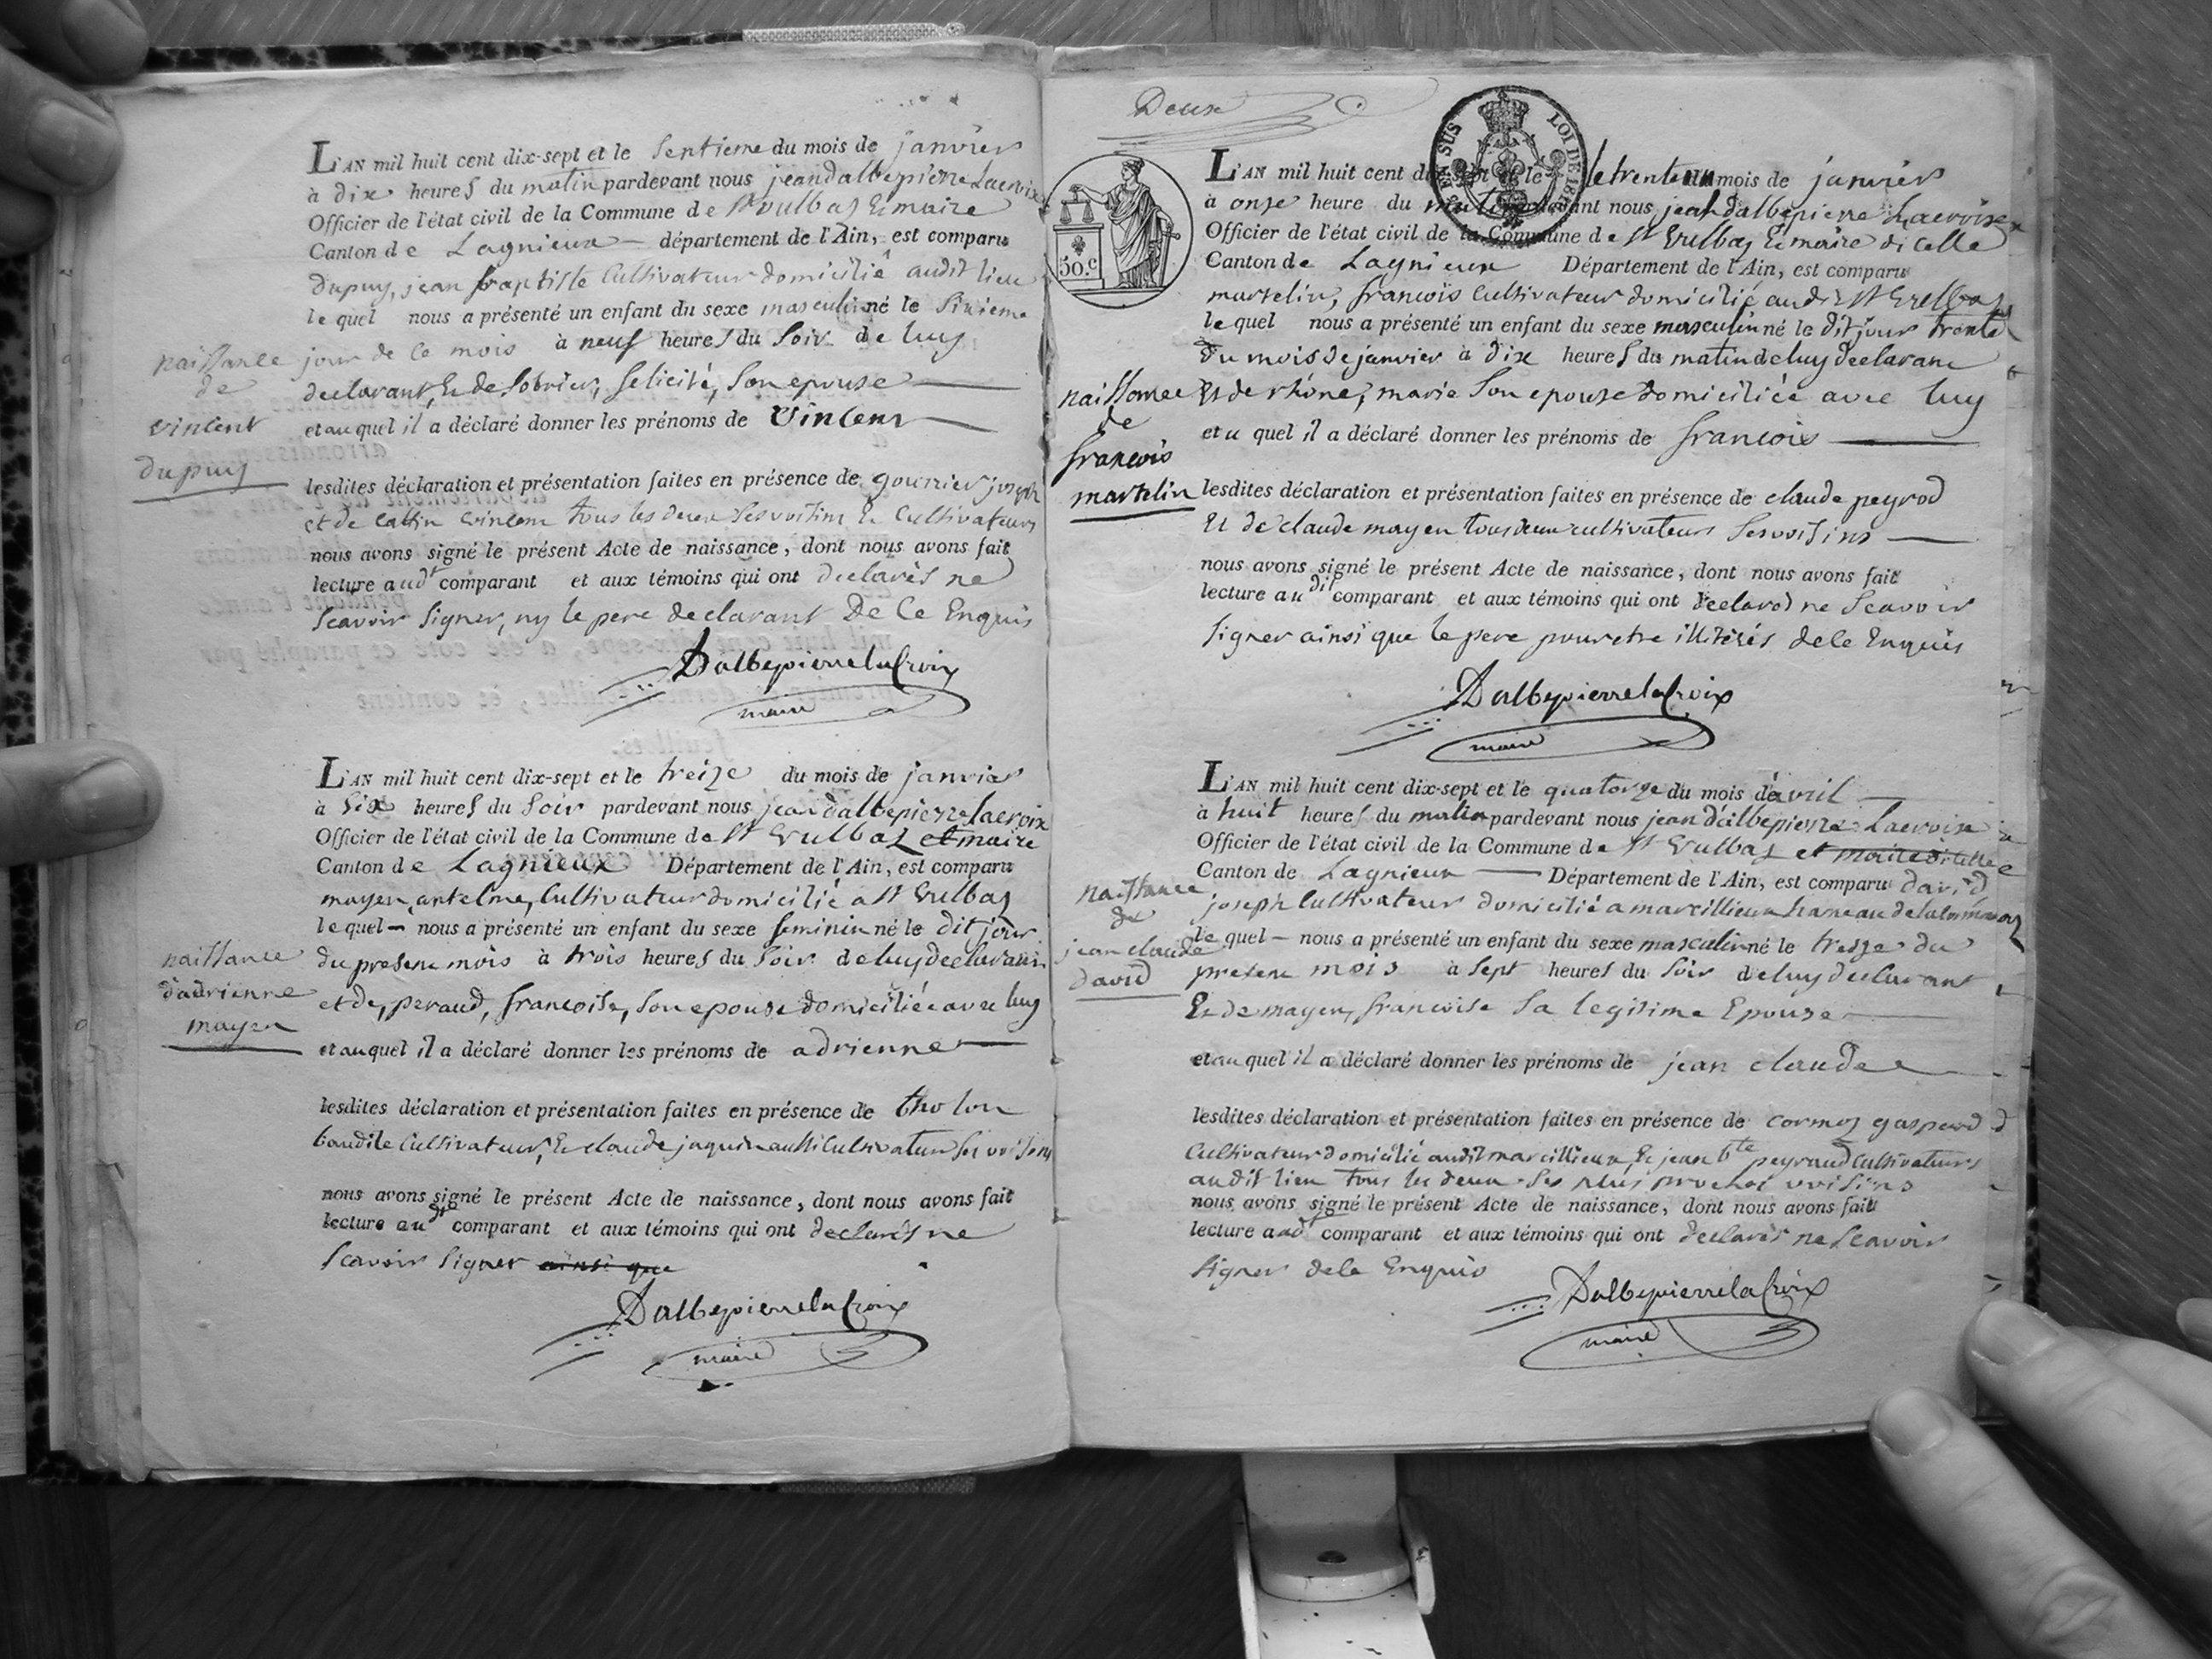 L'AN mil huit cent dix-sept et le septieme du mois de janvier
à dix heures du matin pardevant nous jean dalbepierre Lacroix
Officier de l'état civil de la Commune de St vulbas Et maire
Canton de Lagnieux département de l'Ain, est comparu
dupuy, jean baptiste Cultivateur domicilié audit lieu
le quel nous a présenté un enfant du sexe masculin né le sixieme
jour de ce mois à neuf heures du soir de luy
declarant, Et de felicité, son epouse
et au quel il a déclaré donner les prénoms de Vincent
naissance
de
vincent
dupuy
lesdites déclaration et présentation faites en présence de joseph
et de vincent tous les deux ses voisins Et Cultivateurs
nous avons signé le présent Acte de naissance, dont nous avons fait
lecture audt comparant et aux témoins qui ont declarés ne
scavoir signer, ny le pere declarant De Ce Enquis
Dalbepierrelacroix
maire
L'AN mil huit cent dix-sept et le treize du mois de janvier
à six heures du soir pardevant nous jean dalbepierre lacroix
Officier de l'état civil de la Commune de St Vulbas et maire
Canton de Lagnieux Département de l'Ain, est comparu
mayen, antelme, Cultivateur domicilié a St Vulbas
le quel nous a présenté un enfant du sexe feminin né le dit jour
du present mois à trois heures du soir de luy declarant
et de, peraud, francoise, son epouse domiciliée avec luy
et au quel il a déclaré donner les prénoms de adrienne
naissance
d'adrienne
mayen
lesdites déclaration et présentation faites en présence de tholon
baudile Cultivateur, Et claude jaquin aussi Cultivateur ses voisins
nous avons signé le présent Acte de naissance, dont nous avons fait
lecture au dt comparant et aux témoins qui ont declarés ne
scavoir signer ainsi que
Dalbepierrelacroix
maire
Deux
SUS
LOI DE
50.c
L'AN mil huit cent dix-sept et le le trente un mois de janvier
à onze heure du matin pardevant nous jean dalbepierre Lacroix
Officier de l'état civil de la Commune de St Vulbas Et maire di celle
Canton de Lagnieux Département de l'Ain, est comparu
martelin, francois Cultivateur domicilié audit St Vulbas
le quel nous a présenté un enfant du sexe masculin né le dit jour trente
du mois de janvier à dix heures du matin de luy declarant
Et de rhône, marie son epouse domiciliée avec luy
et a quel il a déclaré donner les prénoms de francois
naissance
de
francois
martelin
lesdites déclaration et présentation faites en présence de claude peyrod
Et de claude mayen tous deux cultivateurs ses voisins
nous avons signé le présent Acte de naissance, dont nous avons fait
lecture au dit comparant et aux témoins qui ont declarés ne scavoir
signer ainsi que le pere pour etre illiterés de ce Enquis
Dalbepierrelacroix
maire
L'AN mil huit cent dix-sept et le quatorze du mois d'avril
à huit heures du matin pardevant nous jean dalbepierre Lacroix
Officier de l'état civil de la Commune de St Vulbas et maire di celle
Canton de Lagnieux Département de l'Ain, est comparu david
joseph Cultivateur domicilié a marcillieux hameau de la commune
le quel nous a présenté un enfant du sexe masculin né le treize du
present mois à sept heures du soir de luy declarant
Et de mayen, francoise sa legitime Epouse
et au quel il a déclaré donner les prénoms de jean claude
naissance
de
jean claude
david
lesdites déclaration et présentation faites en présence de cormoz gaspard
Cultivateur domicilié audit marcillieux, Et jean bte peyraud Cultivateurs
audit lieu tous les deux ses plus proches voisins
nous avons signé le présent Acte de naissance, dont nous avons fait
lecture audt comparant et aux témoins qui ont declarés ne scavoir
signer de ce Enquis
Dalbepierrelacroix
maire